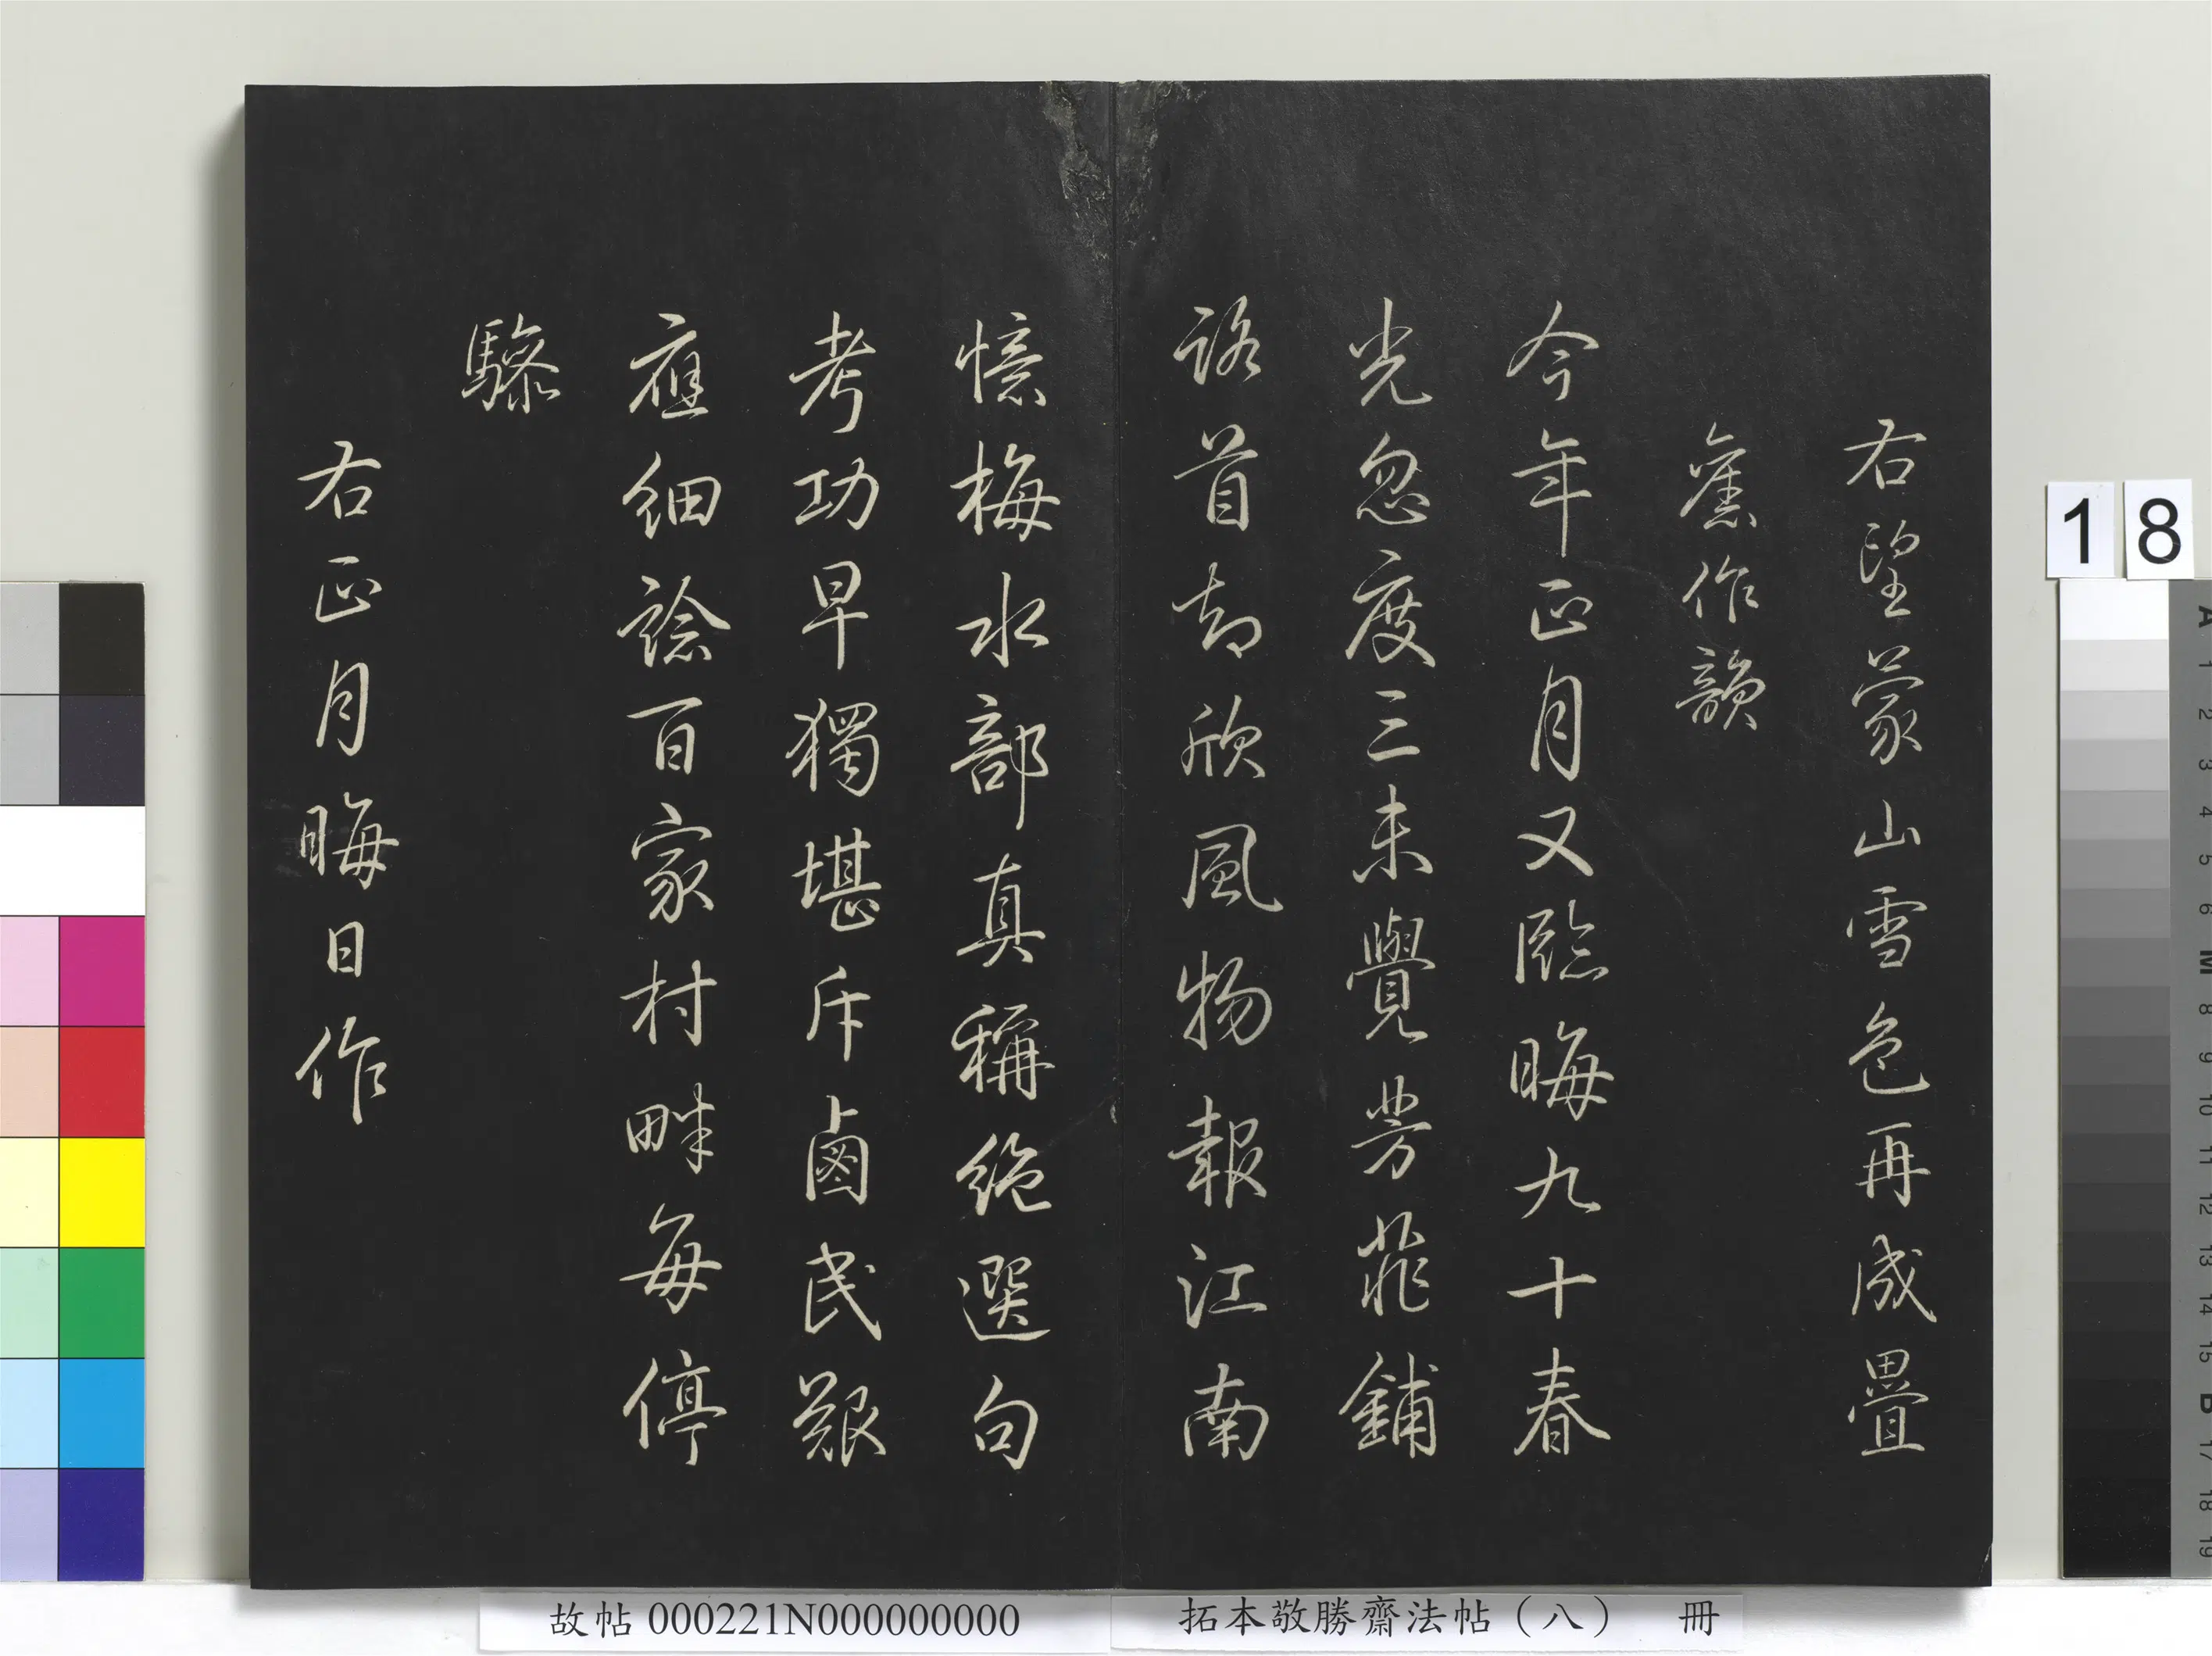 右望蒙山雪色再成疊
舊作韻
今年正月又臨晦九十春
光忽度三未覺芳菲鋪
路首却欣風物報江南
憶梅水部真稱絶選句
考功早獨堪斥鹵民艱
應細諗百家村畔每停
驂
右正月晦日作
故帖 000221N000000000
拓本敬勝齋法帖（八） 冊
18
A
1
2
3
4
5
6
M
8
9
10
11
12
13
14
15
B
17
18
19